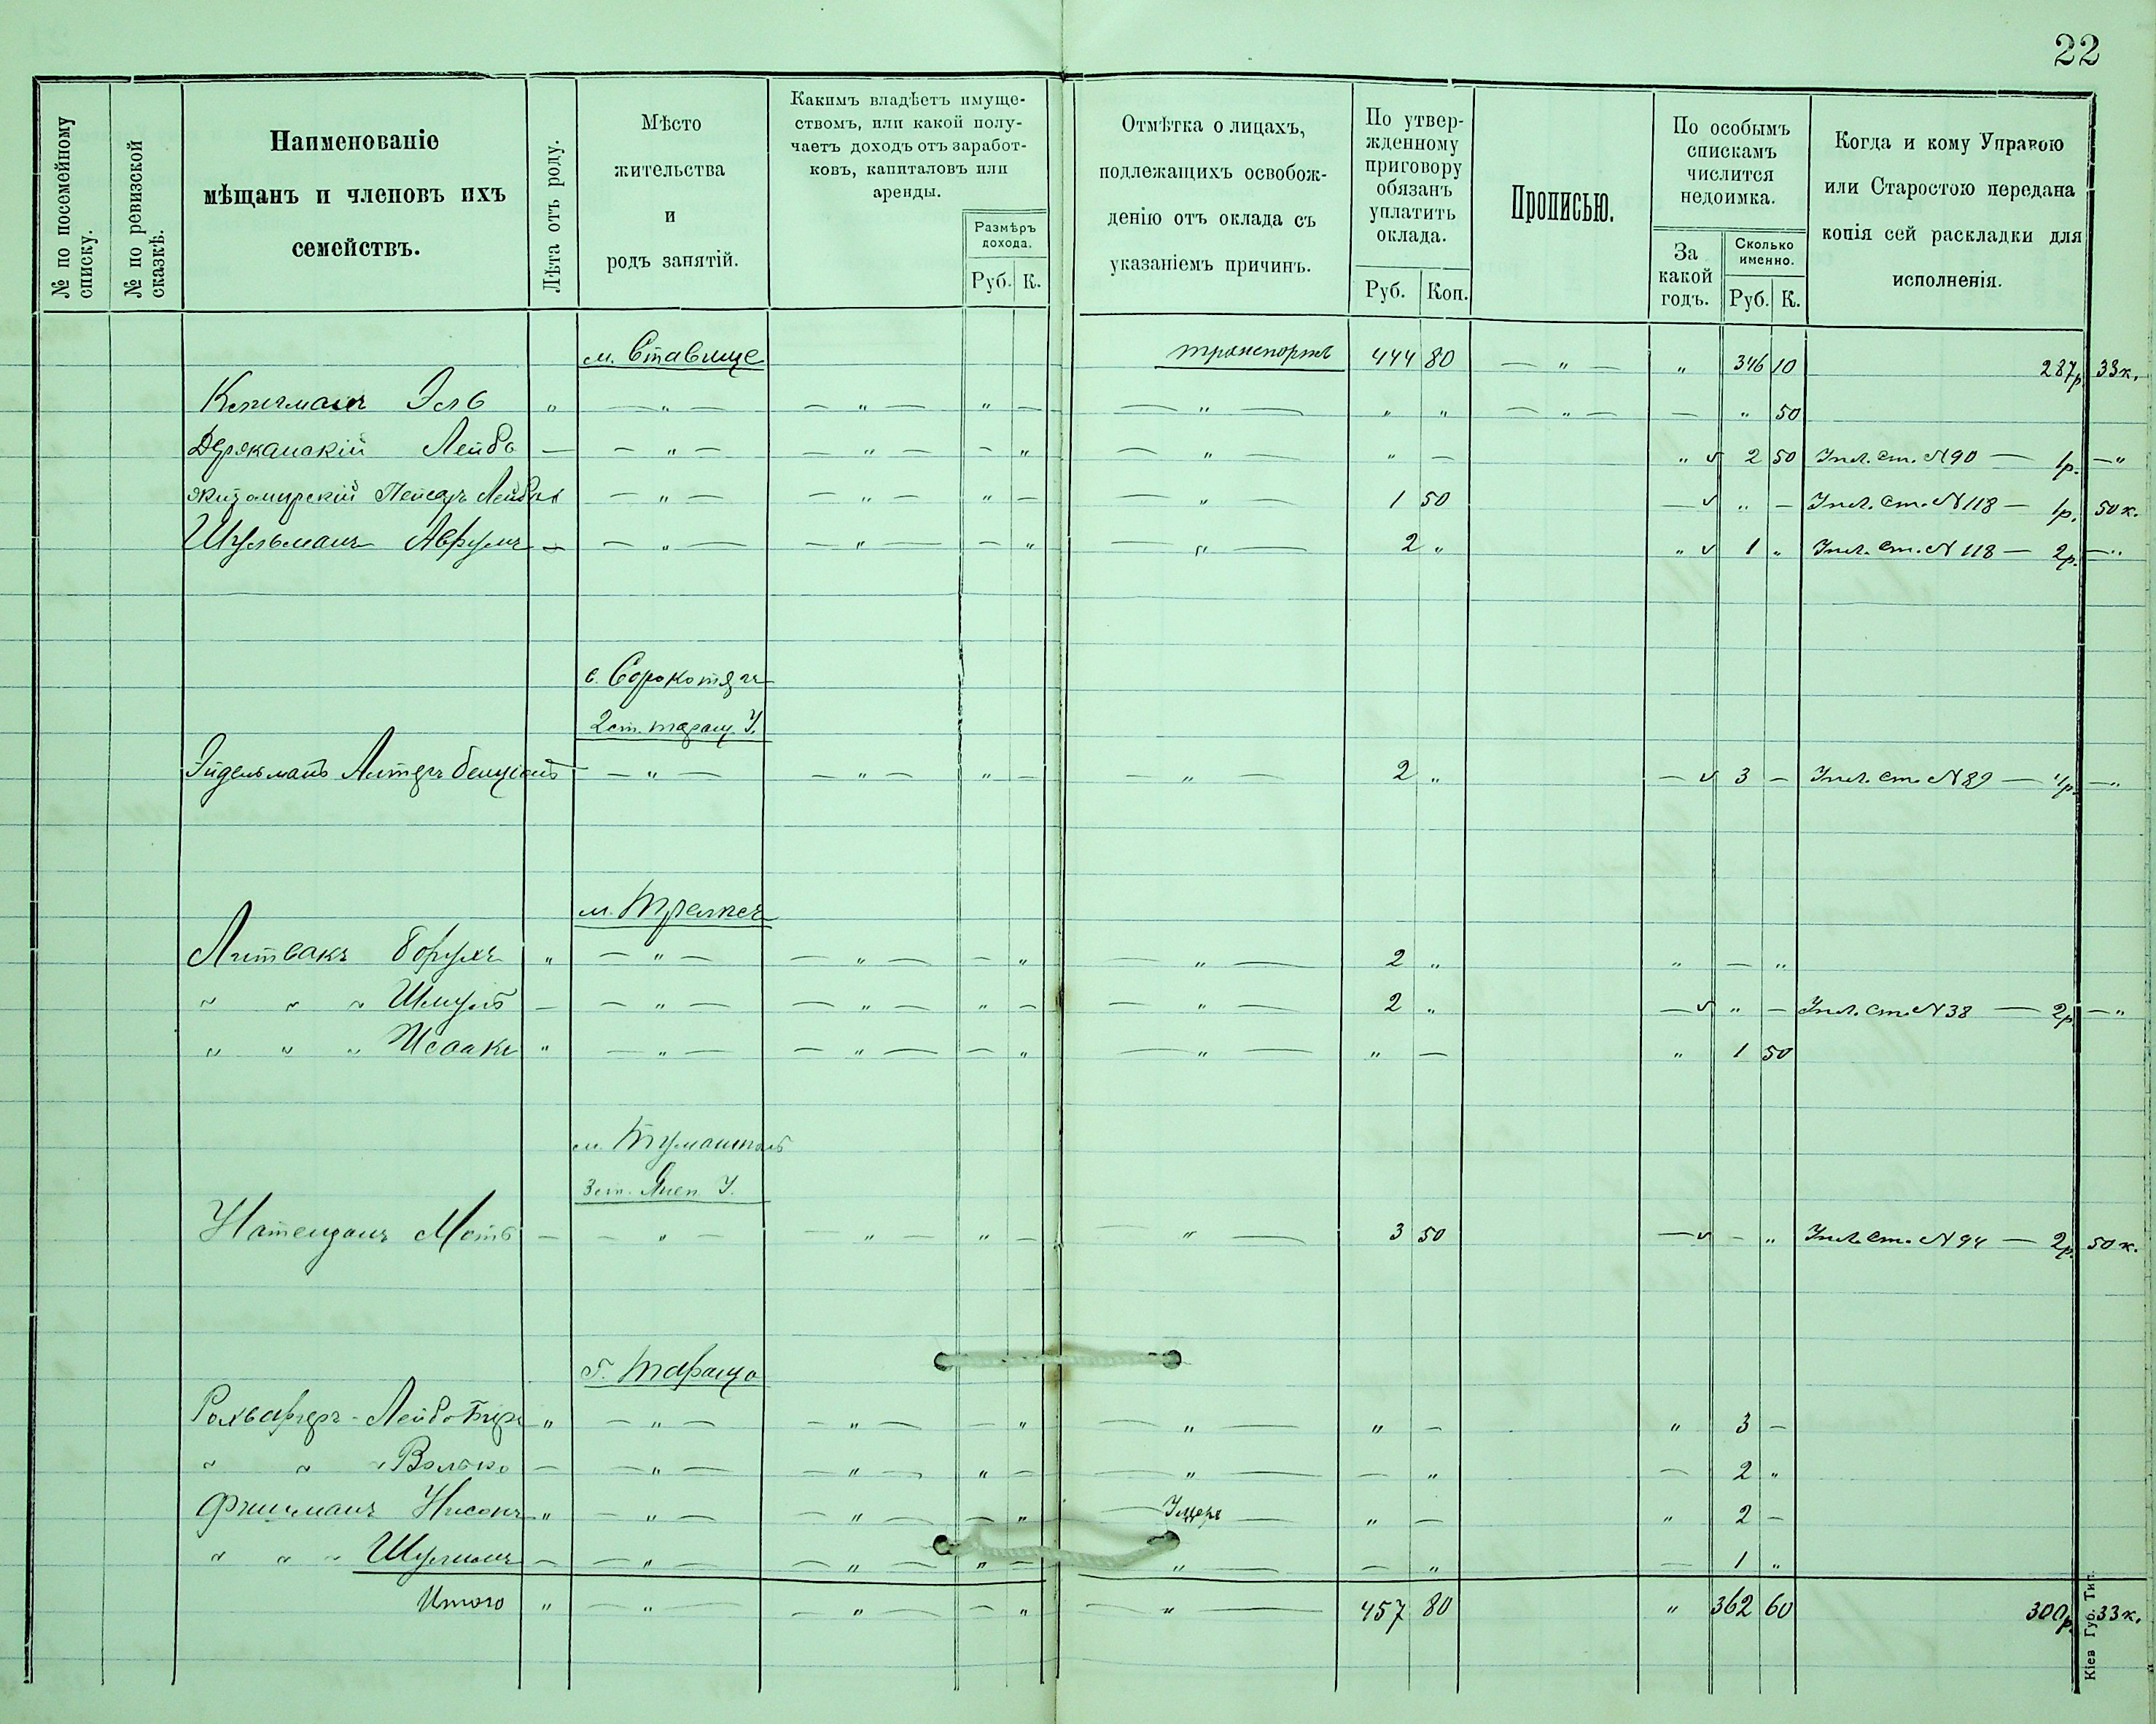 22
№ по посемейному списку.
№ по ревизской сказкѣ.
Наименованіе
мѣщанъ и членовъ ихъ
семействъ.
Лѣта отъ роду.
Мѣсто
жительства
и
родъ занятій.
Какимъ владѣетъ имуще-
ствомъ, или какой полу-
чаетъ доходъ отъ заработ-
ковъ, капиталовъ или
аренды.
Размѣръ
дохода.
Руб. К.
Отмѣтка о лицахъ,
подлежащихъ освобож-
денію отъ оклада съ
указаніемъ причинъ.
По утвер-
жденному
приговору
обязанъ
уплатить
оклада.
Руб. Коп.
Прописью.
По особымъ
спискамъ
числится
недоимка.
За
какой
годъ.
Сколько
именно.
Руб. К.
Когда и кому Управою
или Старостою передана
копія сей раскладки для
исполненія.
м. Ставище транспортъ 444 80 — " — " 346 10 287р. 33к.
" — " — — " — " — — " — " " — " — — " 50
Лейба — — " — — " — — " — " — " — " v 2 50 ст. N 90 — 1р. — "
Житомирскій Пейсахъ — " — — " — " — — " — 1 50 — v " — ст. N 118 — 1р. 50к.
Шульманъ Аврумъ — — " — — " — — " — " — 2 " " v 1 " ст. N 118 — 2р. — "
с. Сорокотяга
2 ст. Таращ. У.
Эйдельманъ — " — — " — " — — " — 2 " — v 3 — ст. N 89 — 1р. — "
м.
Литвакъ Борухъ " — " — — " — — " — " — 2 " " — "
" " " Шмуль — — " — — " — " — — " — 2 " — v " — ст. N 38 — 2р. — "
" " " Исаакъ " — " — — " — — " — " — " — " 1 50
м.
3 ст. У.
Натензонъ — — " — — " — " — — " — 3 50 — v — " ст. N 94 — 2р. 50к.
г. Тараща
Лейба " — " — — " — — " — " — " — " 3 —
" " " Волько — — " — — " — " — — " — — " — 2 "
Фишманъ Нисонъ " — " — — " — — " — — " — " 2 —
" " " — — " — — " — " — " — — " — 1 "
Итого " — " — — " — — " " — 457 80 " 362 60 300р. 33к.
Кіев Губ. Тип.